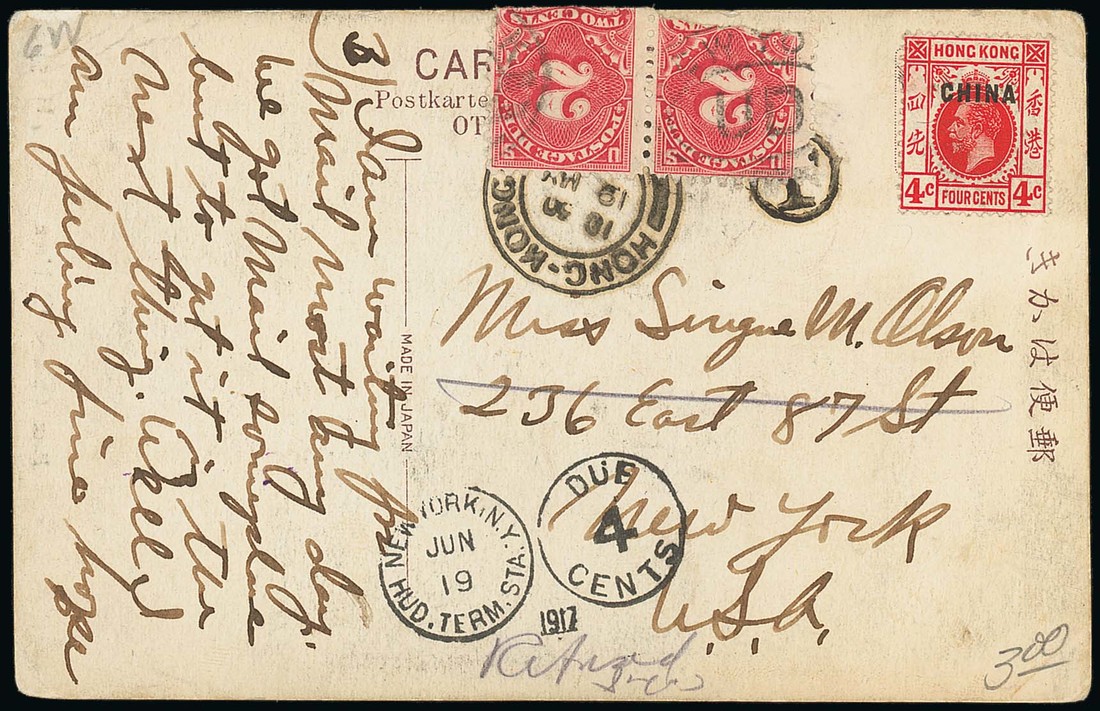 6W
CAR
Postkarte
OT
3) I am waiting for
Mail most any day.
we got Mail
but to get it is the
next thing. Well I
am feeling fine hope
MADE IN JAPAN
TWO CENTS
2
POSTAGE DUE
2
POSTAGE DUE
U
HONG-KONG
18 MY
T
HONG KONG
CHINA
香港
四先
4c
FOUR CENTS
4c
きかは便郵
Miss Singne M. Olson
236 East 87 St
New York
U.S.A.
NEW YORK, N.Y.
JUN
19
HUD. TERM. STA.
1917
DUE
4
CENTS
3.00